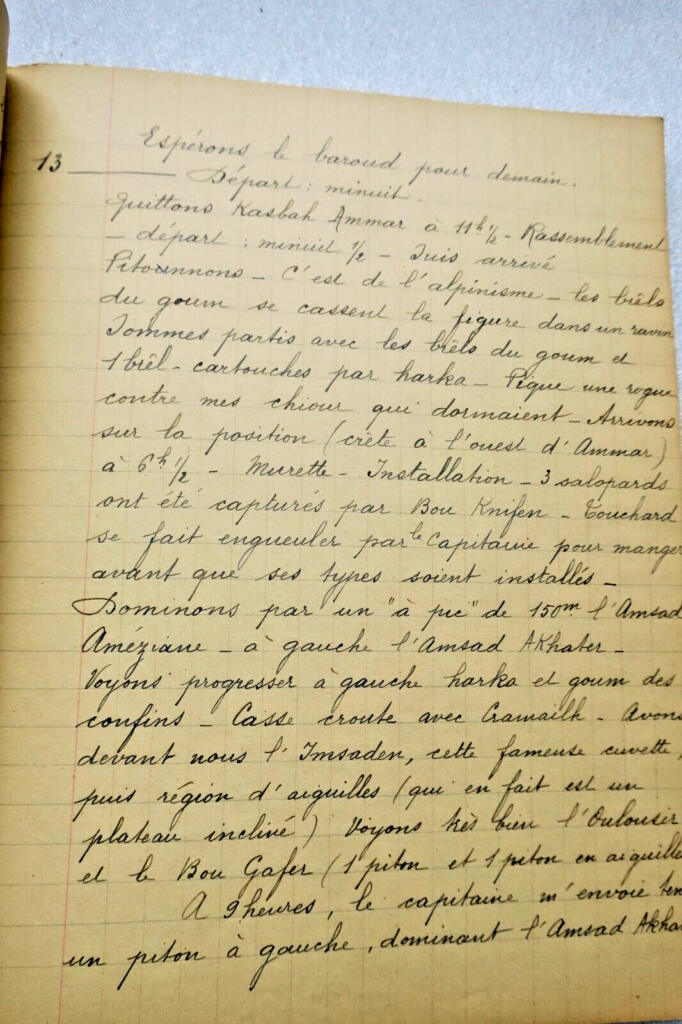 Espérons le baroud pour demain.
13 ——— Départ : minuit.
Quittons Kasbah Ammar à 11h ½ - Rassemblement
- départ : minuit ½ - Suis arrivé
Pitonnons - C'est de l'alpinisme - les brêls
du goum se cassent la figure dans un ravin
Sommes partis avec les brêls du goum et
1 brêl - cartouches par harka - Pique une rogue
contre mes chiour qui dormaient - Arrivons
sur la position (crête à l'ouest d'Ammar)
à 6h ½ - Murette - Installation - 3 salopards
ont été capturés par Bou Knifen - Touchard
se fait engueuler par le Capitaine pour manger
avant que ses types soient installés -
Dominons par un "à pic" de 150m l'Amsad
Améziane - à gauche l'Amsad Akhater -
Voyons progresser à gauche harka et goum des
confins - Casse croute avec Crawailh - Avons
devant nous l'Imsaden, cette fameuse cuvette,
puis région d'aiguilles (qui en fait est un
plateau incliné) Voyons très bien l'Oulousir
et le Bou Gafer (1 piton et 1 piton en aiguille
A 9 heures, le capitaine m'envoie
un piton à gauche, dominant l'Amsad